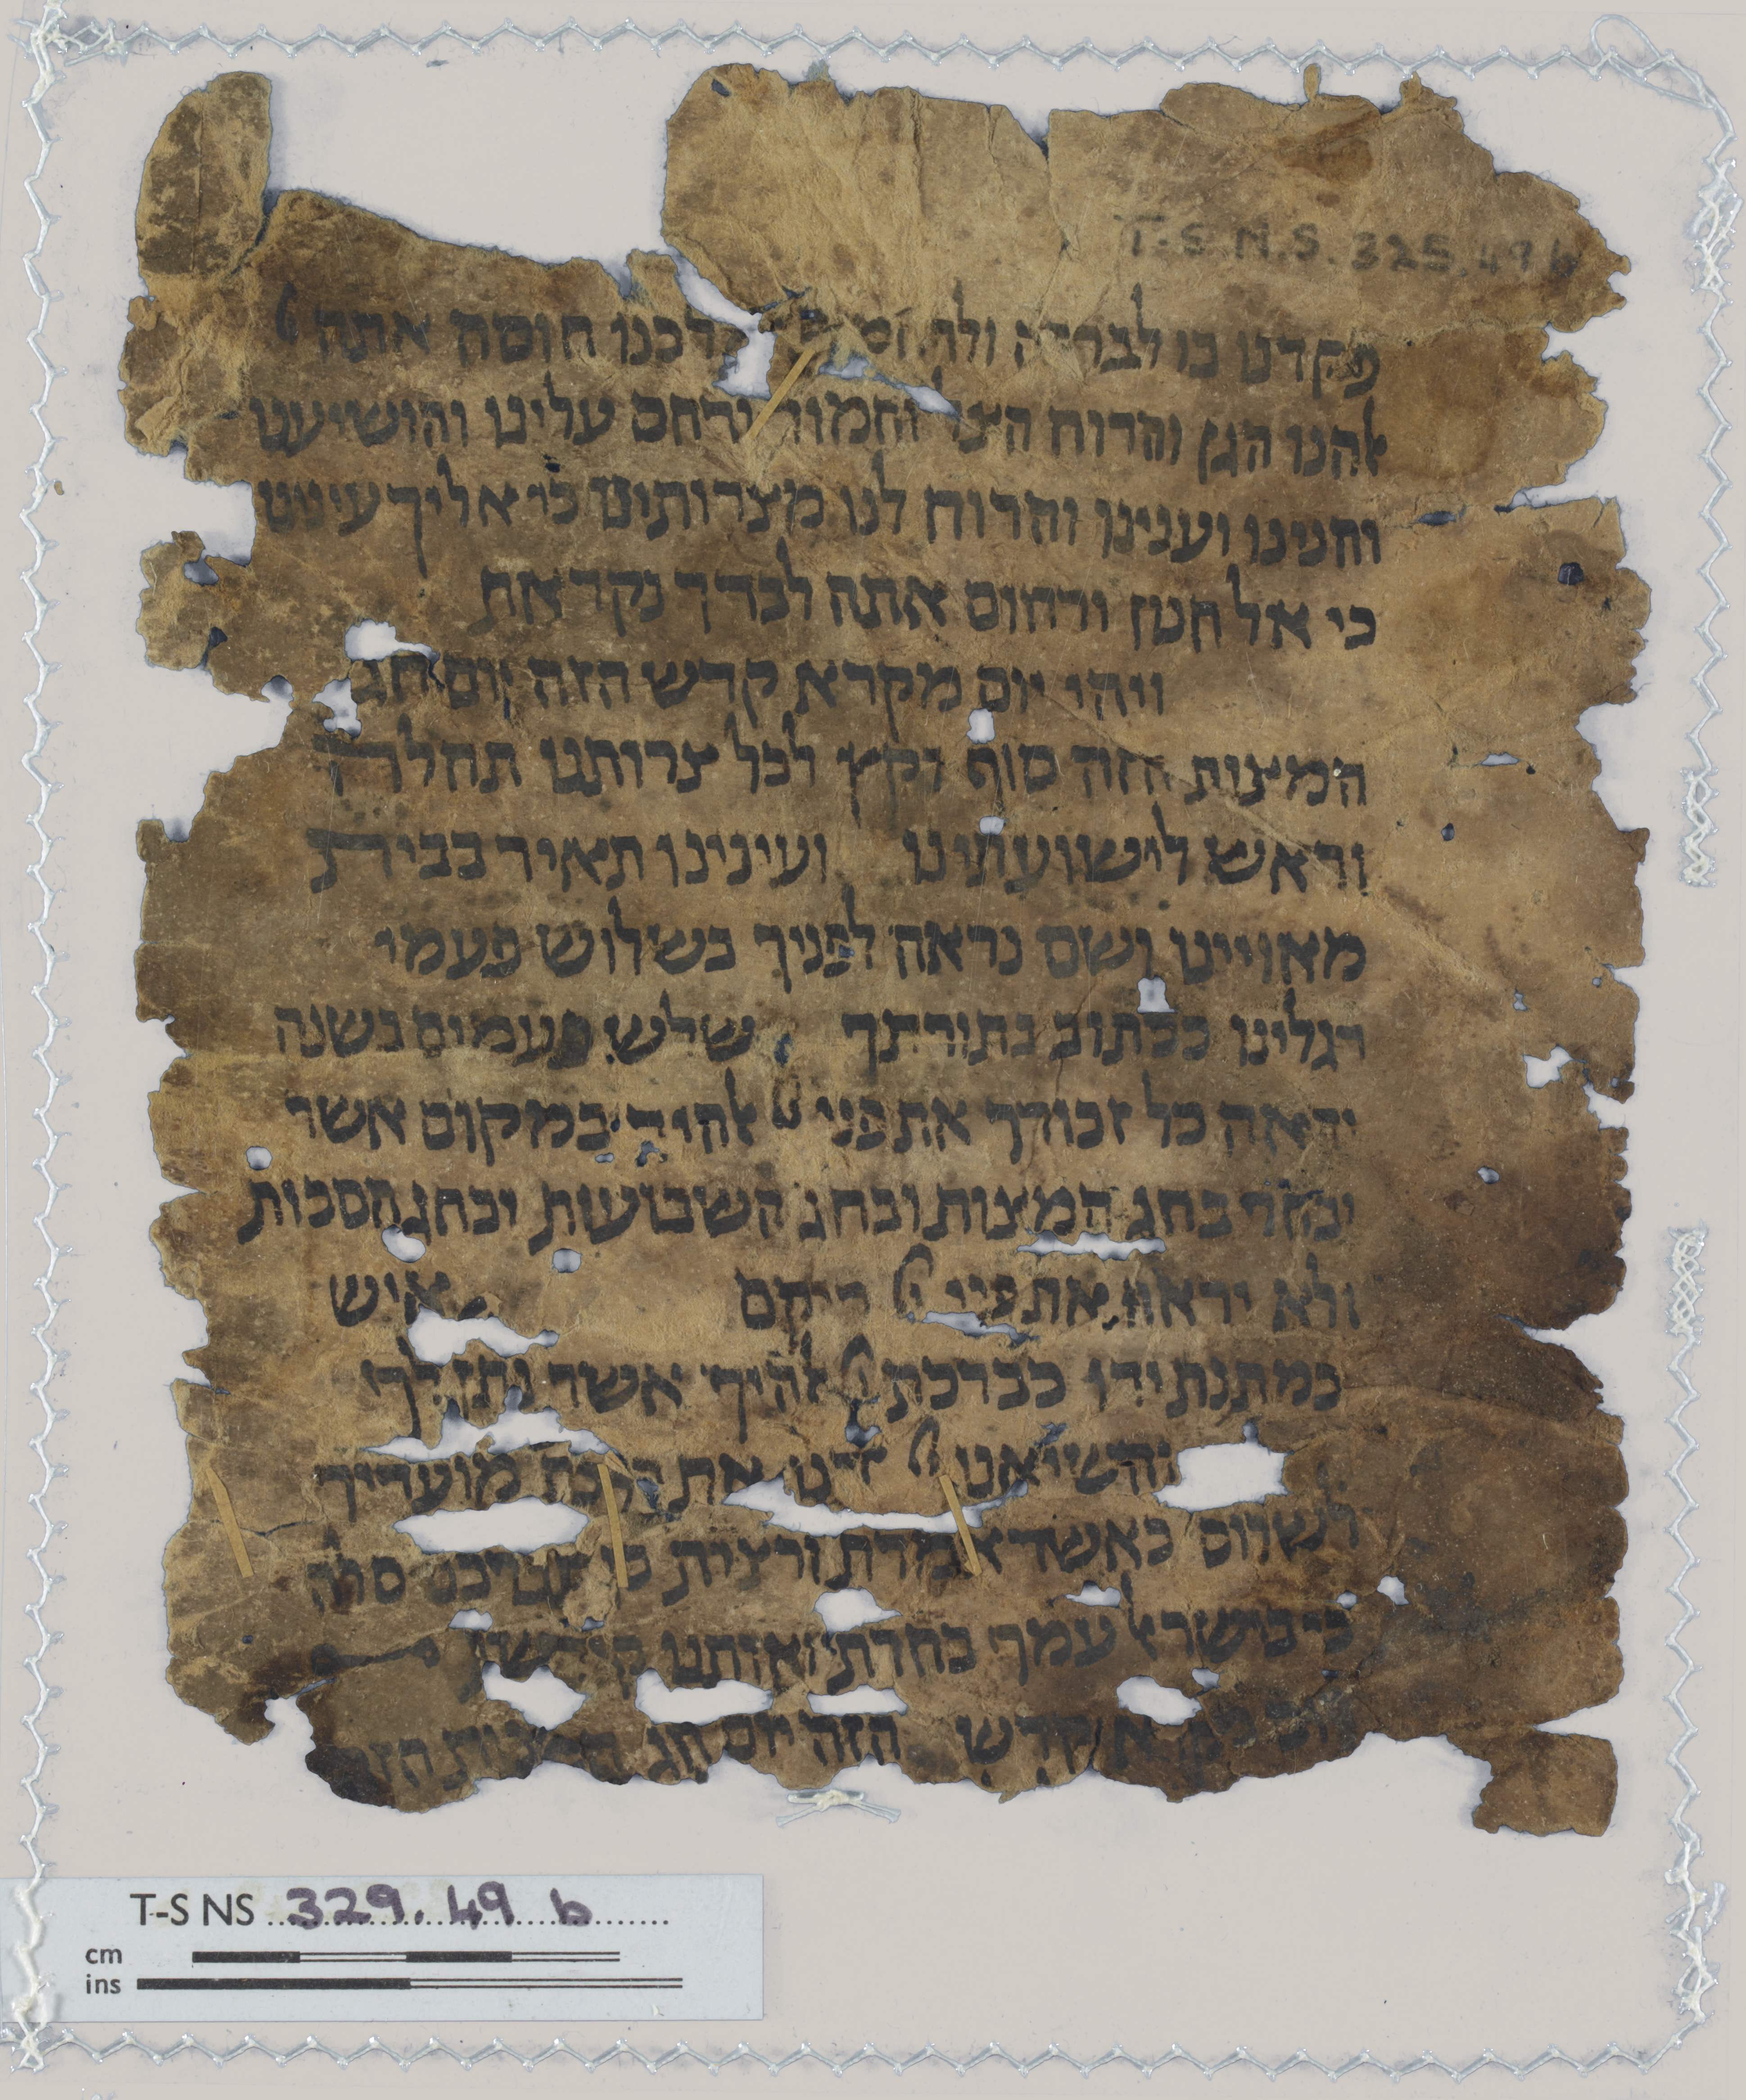 T.S.N.S. 325.49 b
פקדנו בו לברכה חוסה אתה
להנו הגן והרוח הצל וחמול ורחם עלינו והושיענו
וחנינו וענינו והרוח לנו מצרותינו כי אליך עינינו
כי אל חנון ורחום אתה לבדך נקראת
ויהי יום מקרא קדש הזה יום חג
המצות הזה סוף וקץ לכל צרותנו תחלה
וראש לישועתינו ועינינו תאיר בבית
מאויינו ושם נראה לפניך בשלוש פעמי
רגלינו ככתוב בתורתך שלש פעמים בשנה
יראה כל זכורך את פני להיך במקום אשר
יבחר בחג המצות ובחג השבועות ובחג הסכות
ולא יראה את פני ריקם איש
כמתנת ידו כברכת להיך אשר נתן לך
והשיאנו את ברכת מועדיך
לשלום כאשר אמרת ורצית סלה
כי בישראל עמך בחרת ואותנו קידשת
קדש הזה יום חג המצות הזה
T-S NS 329.49 b
cm
ins